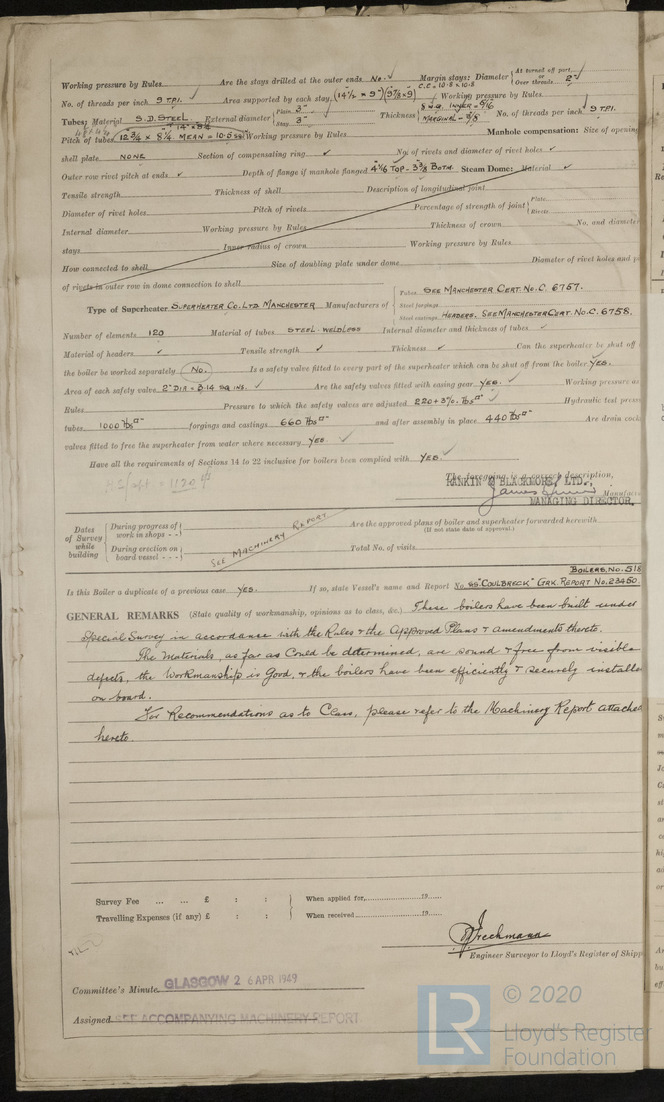 Working pressure by Rules Are the stays drilled at the outer ends No. ✓ Margin stays: Diameter { At turned off part or Over threads 2"
No. of threads per inch 9 T.P.I. ✓ Area supported by each stay (14½ × 9") (9⅞ × 9) C.C. = 10.8 × 10.8 Working pressure by Rules
Tubes: Material S.D. STEEL External diameter { Plate 3" Stay 3" Thickness { MARGINAL = 5/16 No. of threads per inch 9 T.P.I.
Pitch of tubes 12¾ × 8¼ MEAN = 10.5 Working pressure by Rules Manhole compensation: Size of opening
shell plate NONE Section of compensating ring ✓ No. of rivets and diameter of rivet holes ✓
Outer row rivet pitch at ends ✓ Depth of flange if manhole flanged 4 5/16 TOP - 3⅜ BOTM. Steam Dome: Material ✓
Tensile strength Thickness of shell Description of longitudinal joint
Diameter of rivet holes Pitch of rivets Percentage of strength of joint { Plate Rivets
Internal diameter Working pressure by Rules Thickness of crown No. and diameter
stays Inner radius of crown Working pressure by Rules
How connected to shell Size of doubling plate under dome Diameter of rivet holes and
of rivets in outer row in dome connection to shell
Type of Superheater SUPERHEATER CO. LTD. MANCHESTER Manufacturers of { Tubes SEE MANCHESTER CERT. No. C. 6757.
Steel forgings
Steel castings HEADERS. SEE MANCHESTER CERT. No. C. 6758.
Number of elements 120 Material of tubes STEEL-WELDLESS Internal diameter and thickness of tubes ✓
Material of headers ✓ Tensile strength ✓ Thickness ✓ Can the superheater be shut off
the boiler be worked separately No. Is a safety valve fitted to every part of the superheater which can be shut off from the boiler YES.
Area of each safety valve 2" DIA = 3.14 SQ. INS. ✓ Are the safety valves fitted with easing gear YES. ✓ Working pressure as
Rules Pressure to which the safety valves are adjusted 220 + 3%. lbs□" ✓ Hydraulic test press
tubes 1000 lbs□" forgings and castings 660 lbs□" and after assembly in place 440 lbs□" Are drain cock
valves fitted to free the superheater from water where necessary YES ✓
Have all the requirements of Sections 14 to 22 inclusive for boilers been complied with YES. ✓
1120
The foregoing is a correct description,
RANKIN & BLACKMORE LTD.,
Manufac
MANAGING DIRECTOR.
Dates of Survey while building { During progress of work in shops - - { During erection on board vessel - - - SEE MACHINERY REPORT
Are the approved plans of boiler and superheater forwarded herewith
(If not state date of approval.)
Total No. of visits
BOILERS. No. 518
Is this Boiler a duplicate of a previous case YES. If so, state Vessel's name and Report No. SS "COULBRECK" GRK. REPORT No. 23450
GENERAL REMARKS (State quality of workmanship, opinions as to class, &c.) These boilers have been built under
Special Survey in accordance with the Rules & the approved Plans & amendments thereto.
The Materials, as far as could be determined, are sound & free from visible
defects, the Workmanship is Good, & the boilers have been efficiently & securely installe
on board.
For Recommendations as to Class, please refer to the Machinery Report attache
hereto.
Survey Fee ... ... £ : : When applied for, 19
Travelling Expenses (if any) £ : : When received 19
Engineer Surveyor to Lloyd's Register of Shipp
Committee's Minute GLASGOW 26 APR 1949
Assigned SEE ACCOMPANYING MACHINERY REPORT.
LR © 2020
Lloyd's Register
Foundation